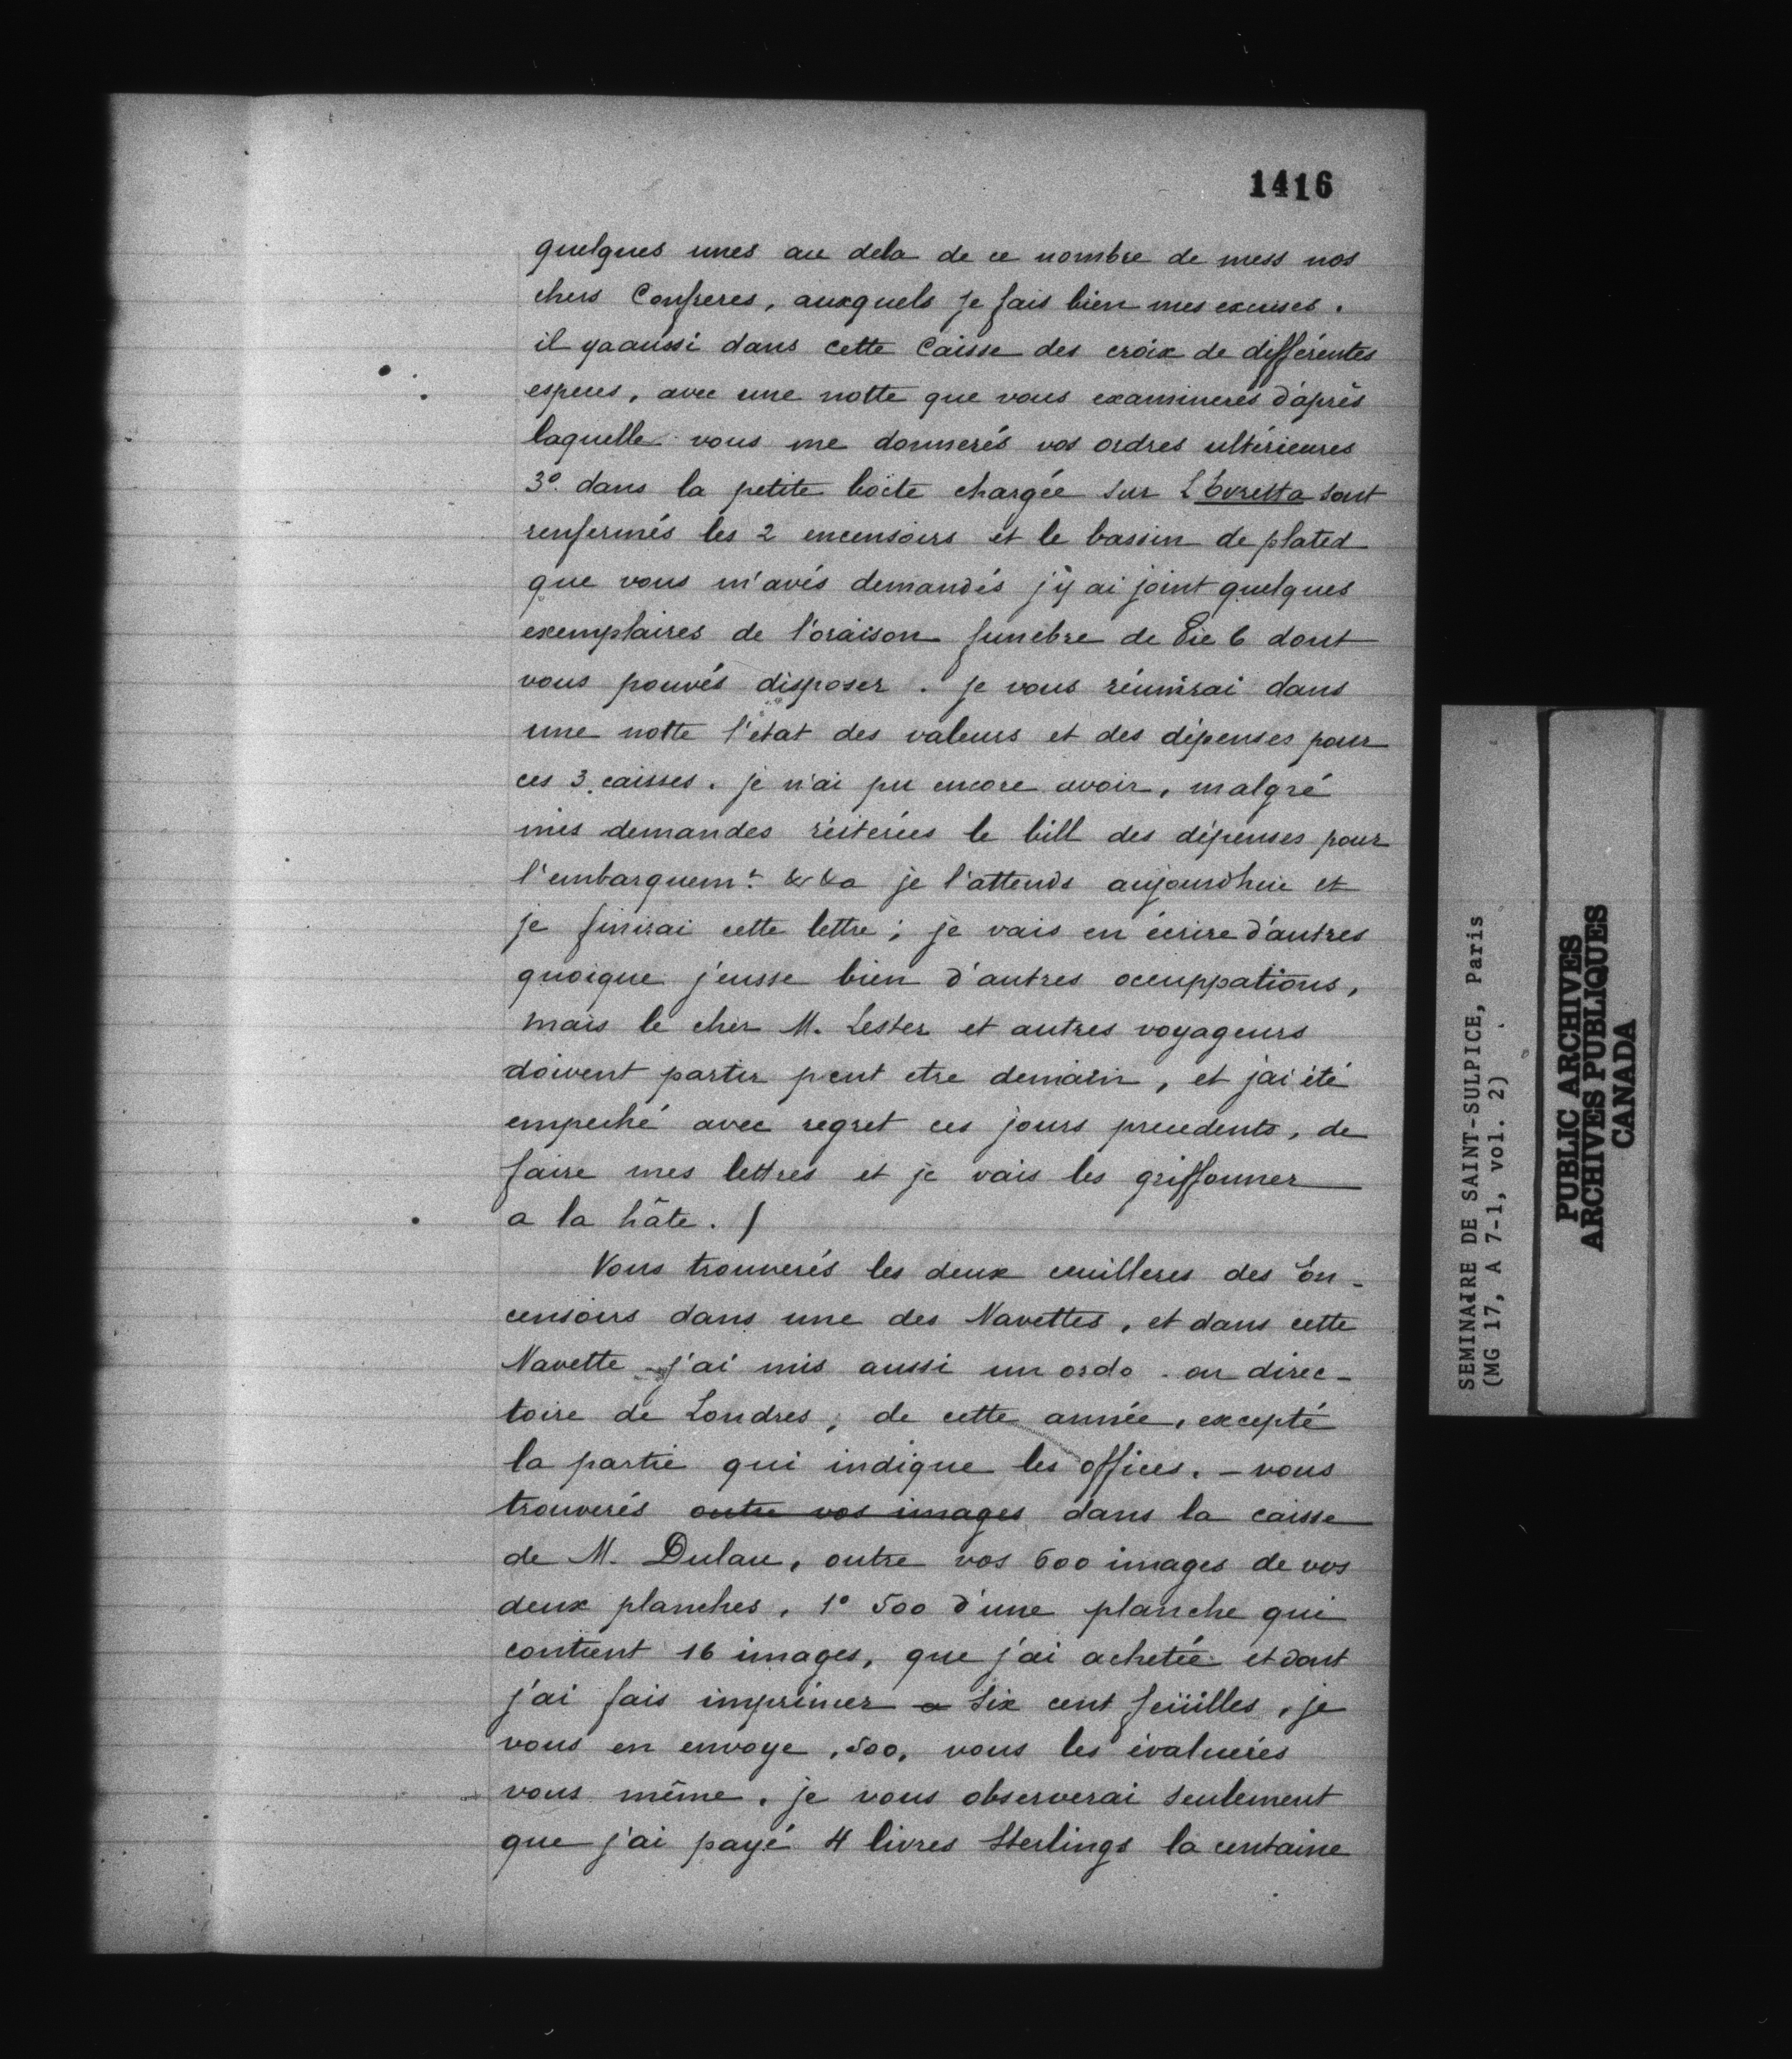 1416
quelques unes au dela de ce nombre de mess nos
chers Confreres, auxquels je fais bien mes excuses.
il ya aussi dans cette Caisse des croix de différentes
especes, avec une notte que vous examinerés d'après
laquelle vous me donnerés vos ordres ultérieures
3º dans la petite boëte chargée sur L'Evretta sont
renfermés les 2 encensoirs et le bassin de plated
que vous m'avés demandés j'ÿ ai joint quelques
exemplaires de l'oraison funebre de Pie 6 dont
vous pouvés disposer. je vous réunirai dans
une notte l'état des valeurs et des dépenses pour
ces 3 caisses. je n'ai pu encore avoir, malgré
mes demandes réiterées le bill des dépenses pour
l'embarquemt. & &a je l'attends aujourdhui et
je finirai cette lettre; je vais en écrire d'autres
quoique j'eusse bien d'autres occuppations,
mais le cher M. Lester et autres voyageurs
doivent partir peut etre demain, et j'ai été
empeché avec regret ces jours precedents, de
faire mes lettres et je vais les griffonner
a la hâte. /
Vous trouverés les deux cuilleres des En-
censoirs dans une des Navettes, et dans cette
Navette j'ai mis aussi un ordo. ou direc-
toire de Londres, de cette année, excepté
la partie qui indique les offices. - vous
trouverés outre vos images dans la caisse
de M. Dulau, outre vos 600 images de vos
deux planches, 1º 500 d'une planche qui
contient 16 images, que j'ai achetée et dont
j'ai fais imprimer a six cent feüilles, je
vous en envoye, 500, vous les évaluerés
vous même. je vous observerai seulement
que j'ai payé 4 livres Sterlings la centaine
SEMINAIRE DE SAINT-SULPICE, Paris
(MG 17, A 7-1, vol. 2)
PUBLIC ARCHIVES
ARCHIVES PUBLIQUES
CANADA